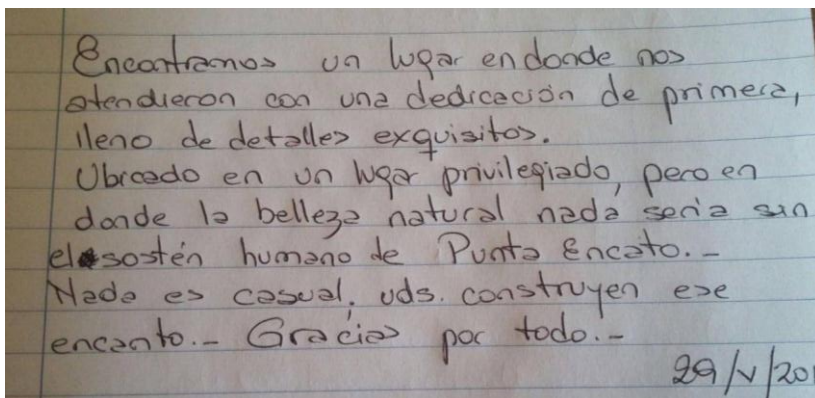 Encontramos un lugar en donde nos
atendieron con una dedicación de primera,
lleno de detalles exquisitos.
Ubicado en un lugar privilegiado, pero en
donde la belleza natural nada sería sin
el sostén humano de Punta Encato.-
Nada es casual. uds. construyen ese
encanto.- Gracias por todo.-
29/V/201